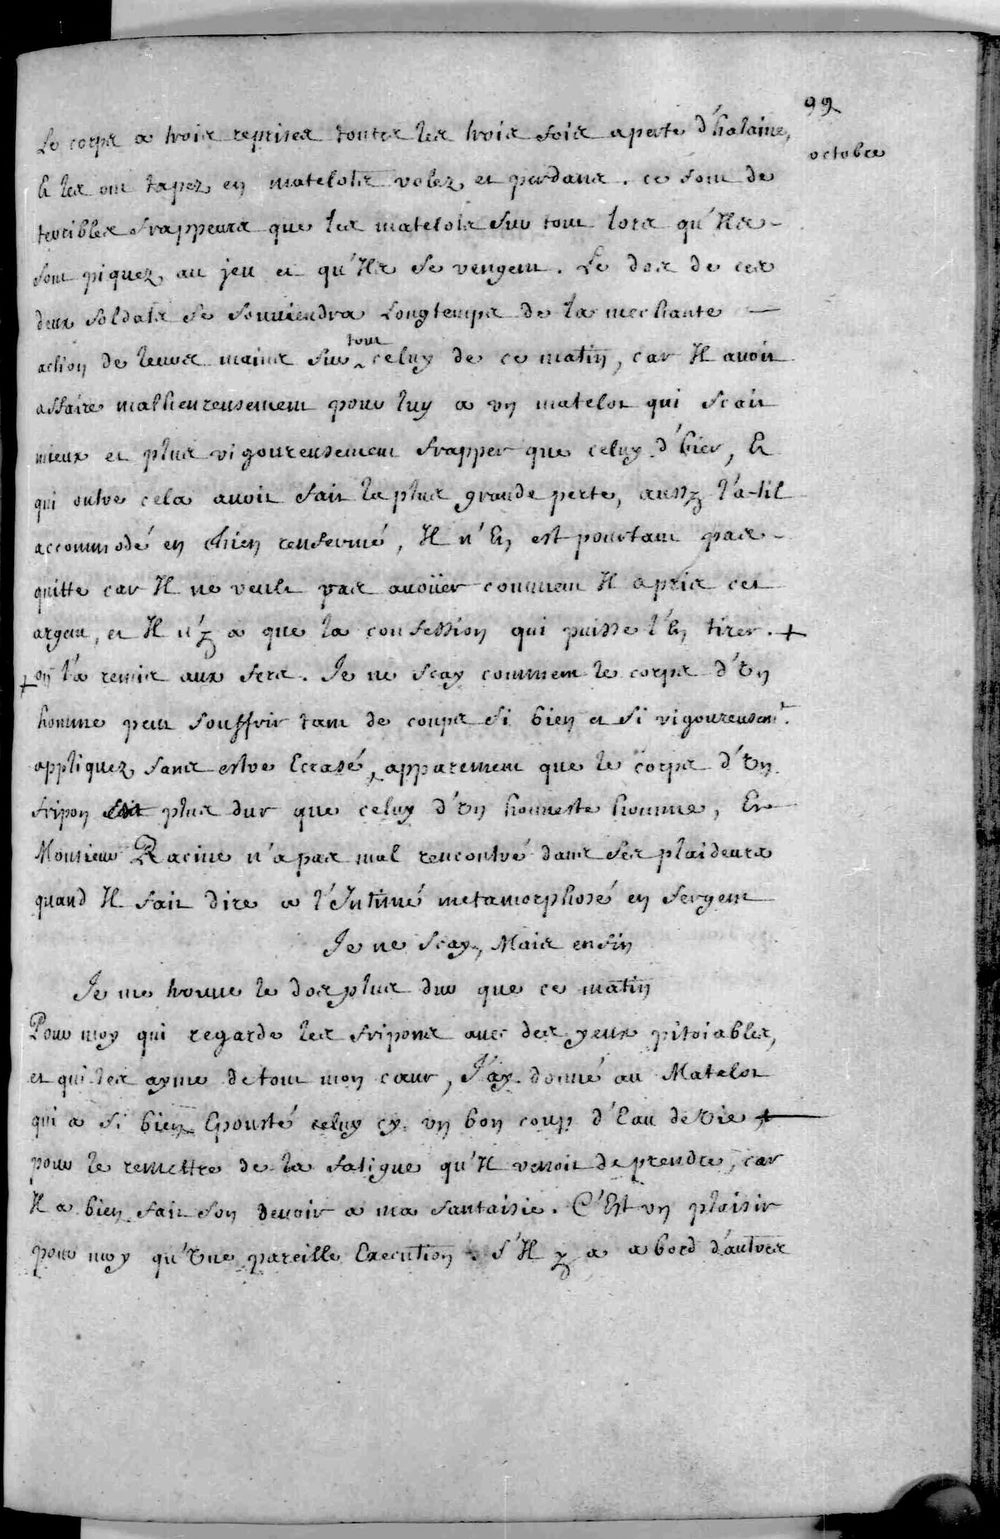 99
octobre
Le corps a trois reprises toutes les trois fois a perte d'halaine,
& les ont tapez en matelots volez et perdans. ce sont de
terribles frappeurs que les matelots sur tout lors qu'Ils
sont piquez au jeu et qu'Ils se vengent. Le dos de ces
deux soldats se souviendra Longtemps de la mechante
action de leurs mains sur tout celuy de ce matin, car Il avoit
affaire malheureusement pour luy a un matelot qui scait
mieux et plus vigoureusement frapper que celuy d'hier, Et
qui outre cela avoit fait la plus grande perte, aussy l'a-til
accommodé en chien renfermé, Il n'En est pourtant pas
quitte car Il ne veult pas avoüer comment Il a pris cet
argent, et Il n'y a que la confession qui puisse l'En tirer. +
+ on l'a remis aux fers. Je ne scay comment le corps d'Un
homme peut souffrir tant de coups si bien et si vigoureusemt.
appliquez sans estre Ecrasé, apparement que le corps d'Un
fripon est plus dur que celuy d'Un honneste homme, Et
Monsieur Racine n'a pas mal rencontré dans ses plaideurs
quand Il fait dire a l'Intimé metamorphosé en sergent
Je ne scay, Mais enfin
Je me trouve le dos plus dur que ce matin
Pour moy qui regarde les fripons avec des yeux pitoiables,
et qui les ayme de tout mon cœur, J'ay donné au Matelot
qui a si bien Epousté celuy cy un bon coup d'Eau de Vie +
pour le remettre de la fatigue qu'Il venoit de prendre, car
Il a bien fait son devoir a ma fantaisie. C'Est un plaisir
pour moy qu'Une pareille Execution. S'Il y a a bord d'autres